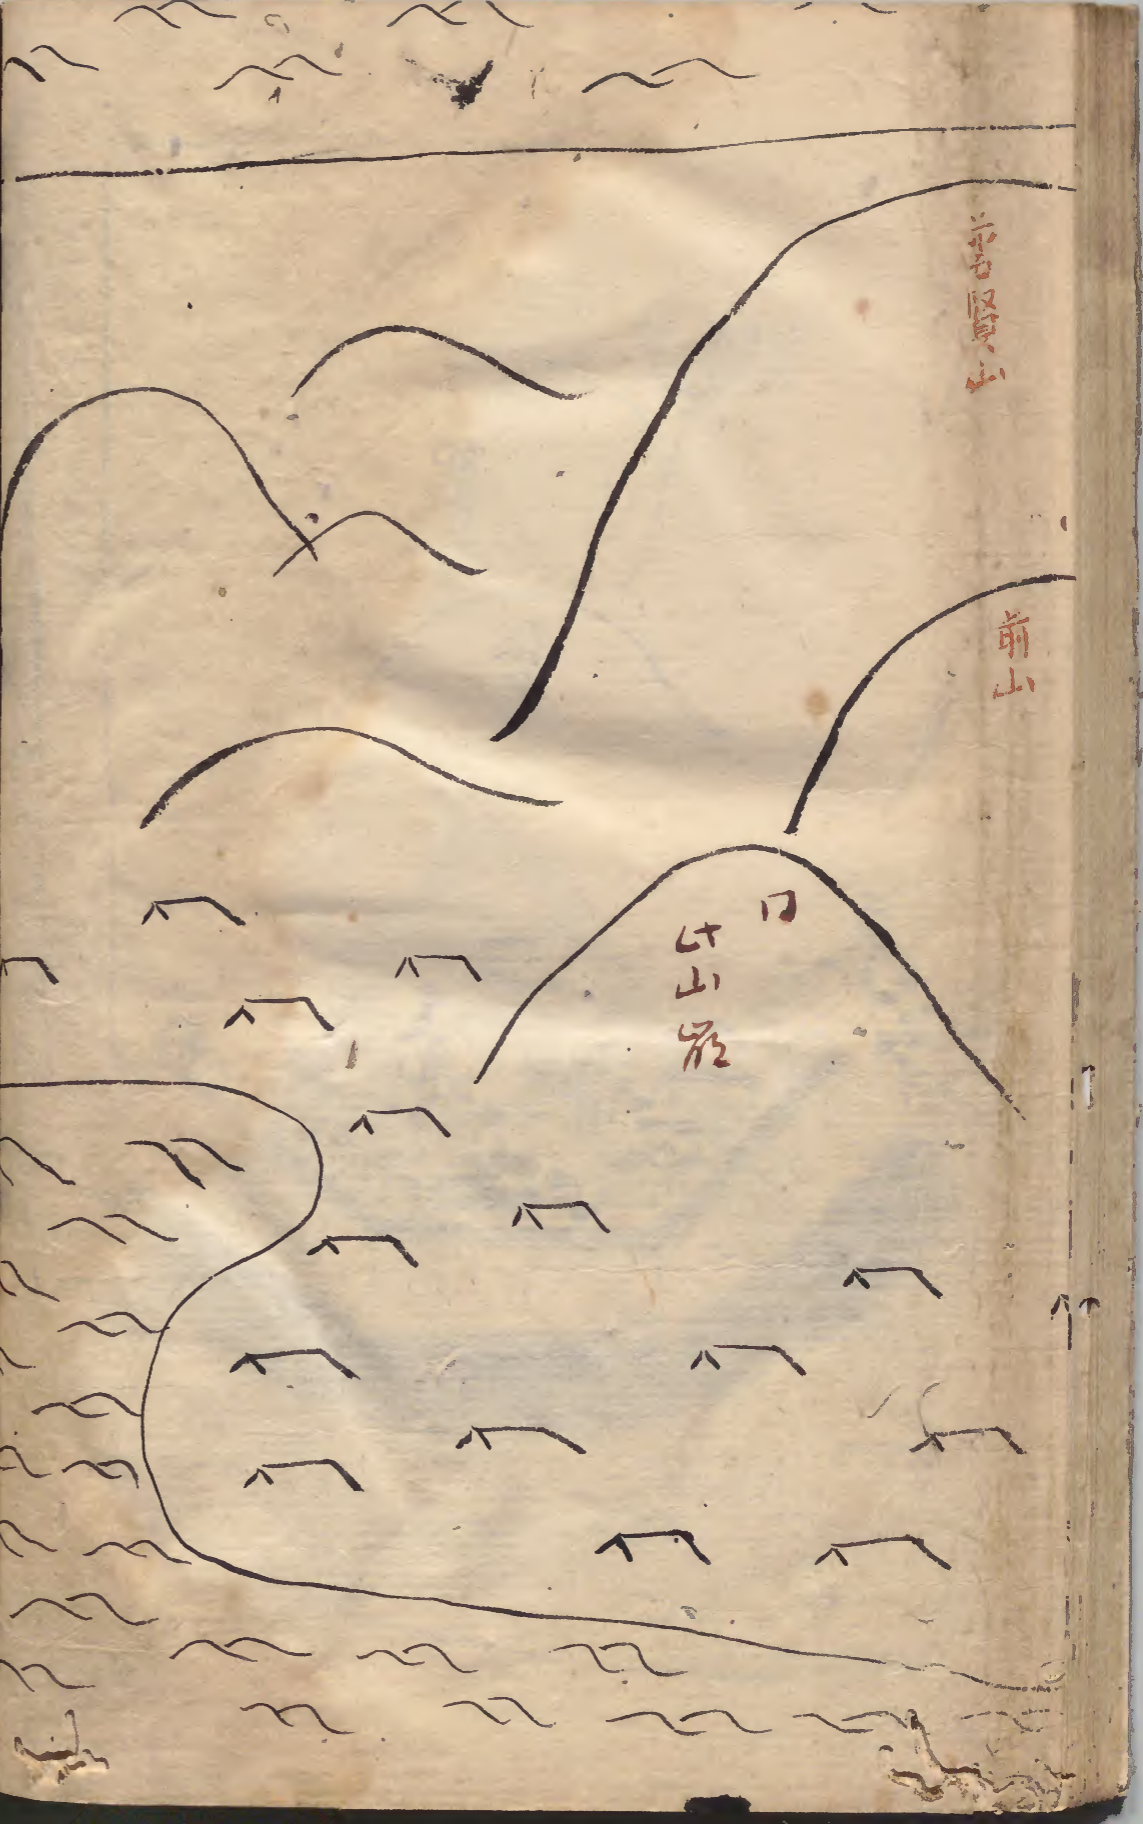 普賢山
前山
此山崩